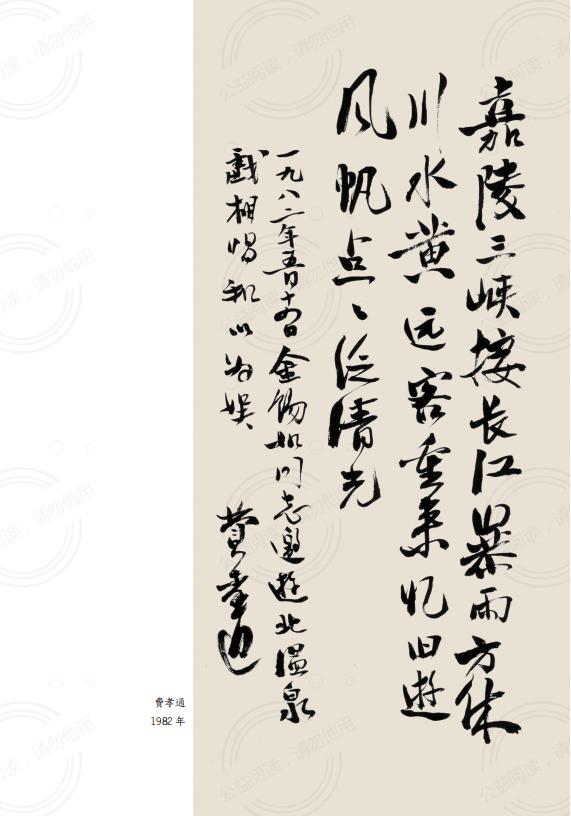 嘉陵三峡接长江暴雨方休
川水黄远客重来忆旧游
风帆点点泛清光
一九八二年五月十四日金锡如同志邀游北温泉
戏相唱和以为娱
费孝通
费孝通
1982 年
公益阅读，请勿他用